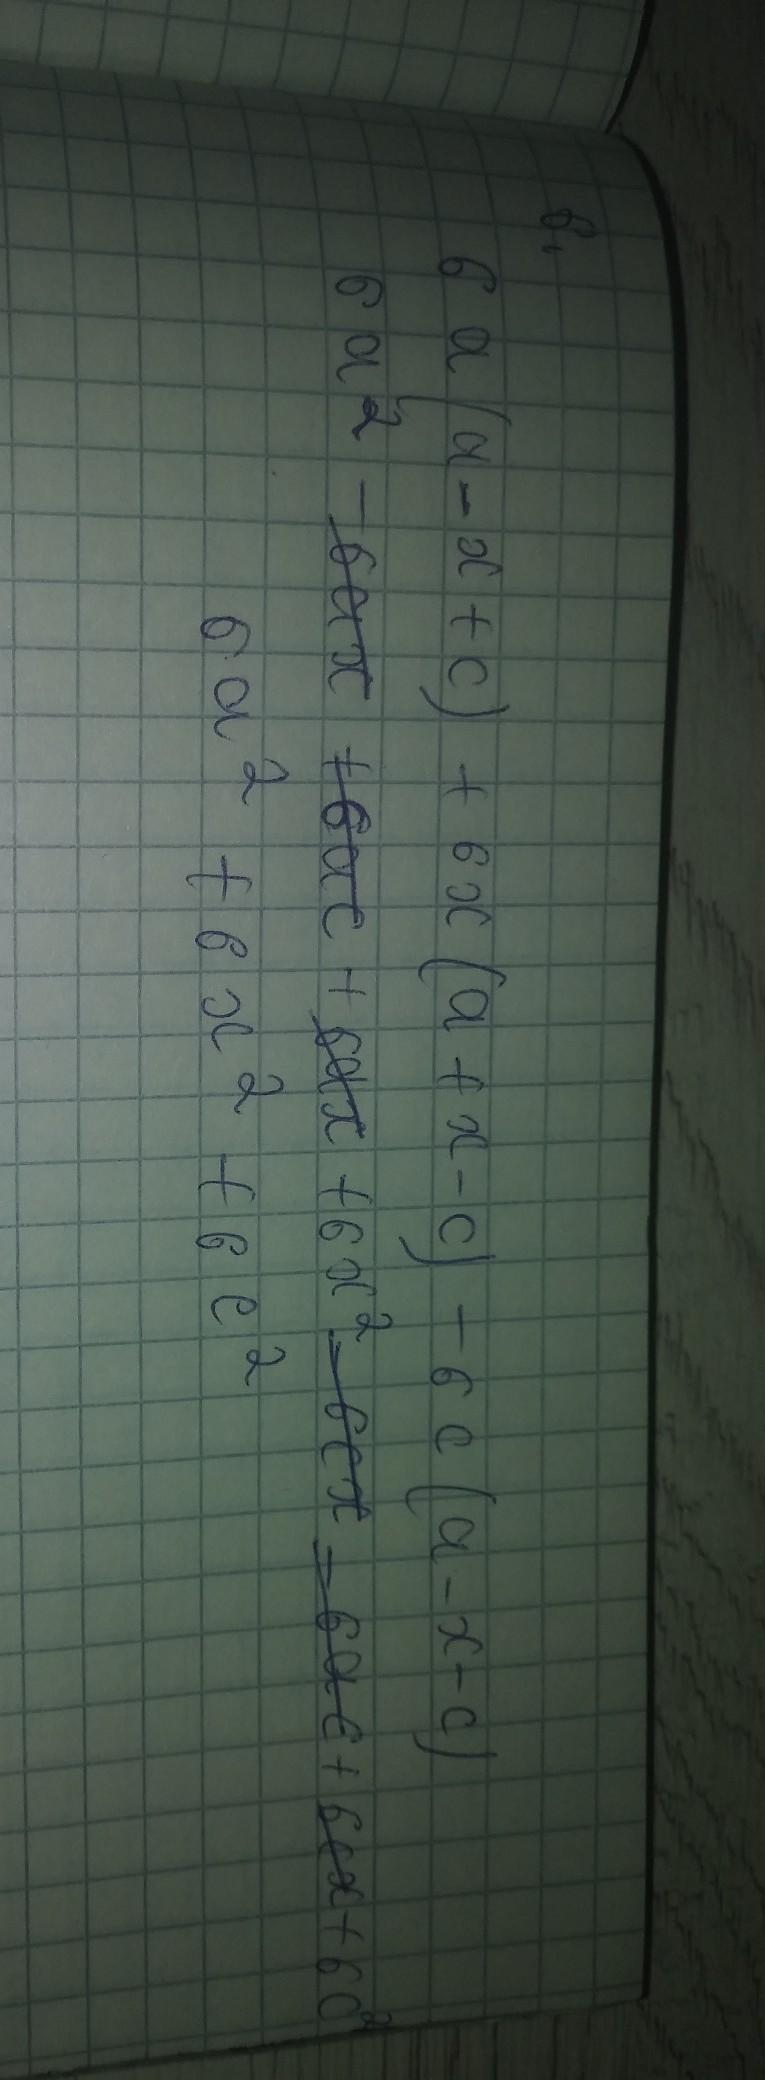 6.
6a(a-x+c) + 6x(a+x-c) - 6c(a-x-c)
6a² - 6ax + 6ac + 6ax + 6x² - 6cx - 6ac + 6cx + 6c²
6a² + 6x² + 6c²